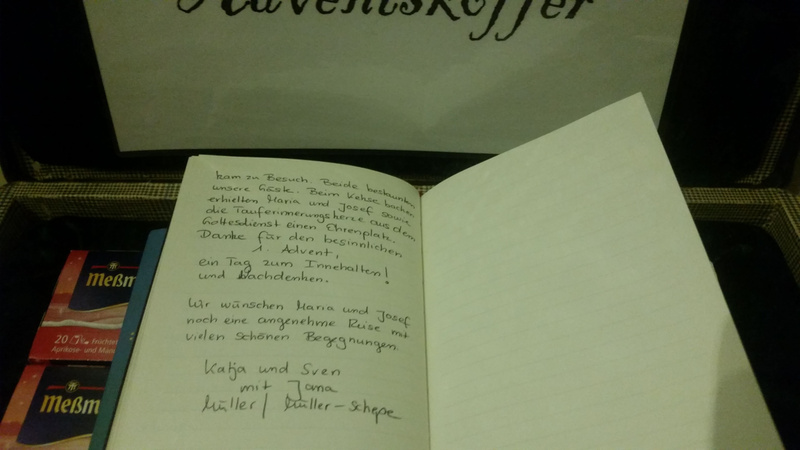 Adventskoffer
kam zu Besuch. Beide bestaunten
unsere Gäste. Beim Kekse backen
erhielten Maria und Josef sowie
die Tauferinnerungskerze aus dem
Gottesdienst einen Ehrenplatz.
Danke für den besinnlichen
1. Advent,
ein Tag zum Innehalten!
und Nachdenken.
Wir wünschen Maria und Josef
noch eine angenehme Reise mit
vielen schönen Begegnungen.
Katja und Sven
mit Jana
Müller / Müller-Schepe
Meßm
20
Aprikose- und
Meßm